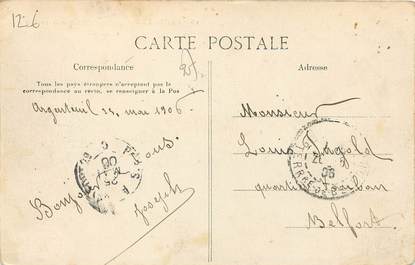 12-6
CARTE POSTALE
Correspondance
Adresse
Tous les pays étrangers n'acceptent pas la
correspondance au recto, se renseigner à la Pos
Argenteuil 25 mai 1906
Bonjour à tous.
Joseph
Monsieur
Louis
quartier Vauban
Belfort.